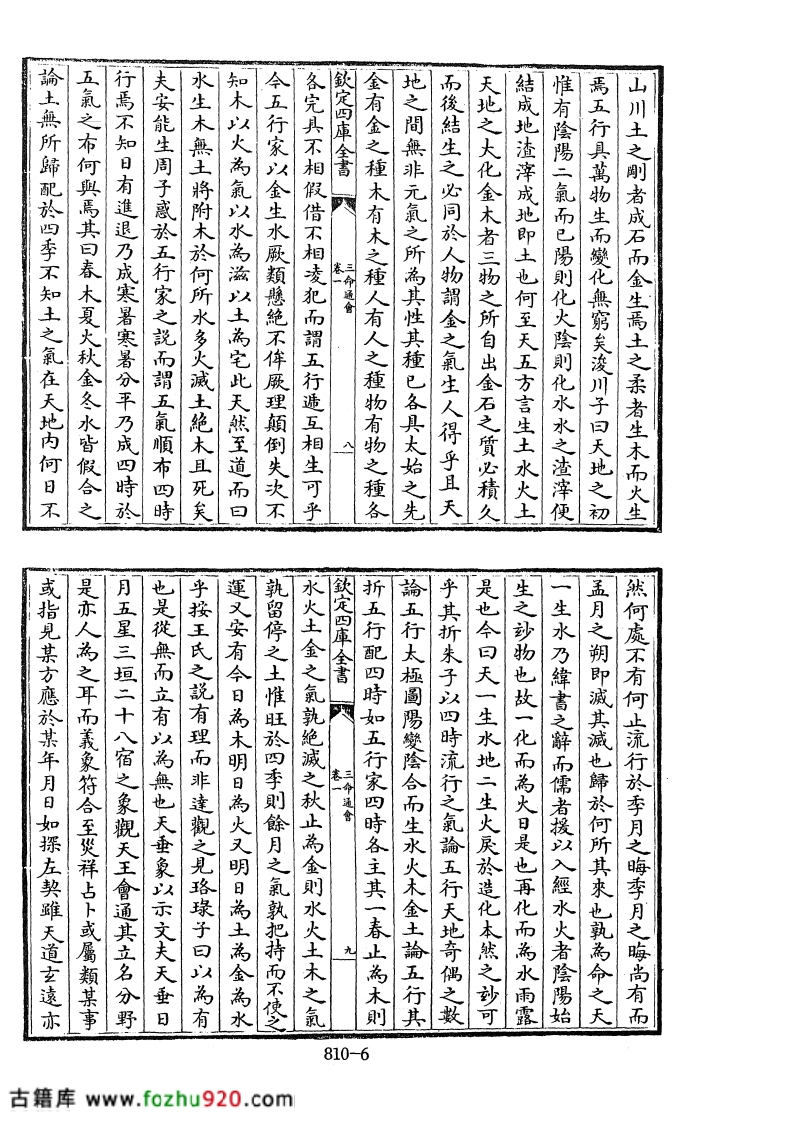 山川土之剛者成石而金生焉土之柔者生木而火生
焉五行具萬物生而變化無窮矣浚川子曰天地之初
惟有陰陽二氣而已陽則化火陰則化水水之渣滓便
結成地渣滓成地即土也何至天五方言生土水火土
天地之大化金木者三物之所自出金石之質必積久
而後結生之必同於人物謂金之氣生人得乎且天
地之間無非元氣之所為其性其種已各具太始之先
金有金之種木有木之種人有人之種物有物之種各
欽定四庫全書
三命通會
卷一
八
各完具不相假借不相凌犯而謂五行遞互相生可乎
今五行家以金生水厥類懸絕不侔厥理顛倒失次不
知木以火為氣以水為滋以土為宅此天然至道而曰
水生木無土將附木於何所水多火滅土絕木且死矣
夫安能生周子惑於五行家之說而謂五氣順布四時
行焉不知日有進退乃成寒暑寒暑分平乃成四時於
五氣之布何與焉其曰春木夏火秋金冬水皆假合之
論土無所歸配於四季不知土之氣在天地内何日不
然何處不有何止流行於季月之晦季月之晦尚有而
孟月之朔即滅其滅也歸於何所其來也孰為命之天
一生水乃緯書之辭而儒者援以入經水火者陰陽始
生之玅物也故一化而為火日是也再化而為水雨露
是也今曰天一生水地二生火戾於造化本然之玅可
乎其折朱子以四時流行之氣論五行天地奇偶之數
論五行太極圖陽變陰合而生水火木金土論五行其
折五行配四時如五行家四時各主其一春止為木則
欽定四庫全書
三命通會
卷一
九
水火土金之氣孰絕滅之秋止為金則水火土木之氣
孰留停之土惟旺於四季則餘月之氣孰把持而不使之
運又安有今日為木明日為火又明日為土為金為水
乎按王氏之說有理而非達觀之見珞琭子曰以為有
也是從無而立有以為無也天垂象以示文夫天垂日
月五星三垣二十八宿之象觀天王會通其立名分野
是亦人為之耳而義象符合至災祥占卜或屬類某事
或指見某方應於某年月日如探左契雖天道玄遠亦
810-6
古籍库 www.fozhu920.com